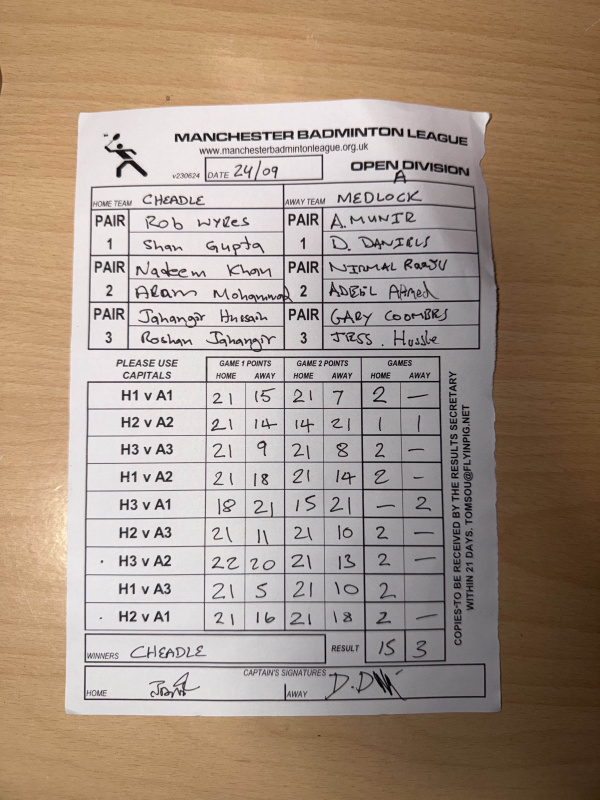 MANCHESTER BADMINTON LEAGUE
www.manchesterbadmintonleague.org.uk
v230624 DATE 24/09 OPEN DIVISION
A
HOME TEAM CHEADLE AWAY TEAM MEDLOCK
PAIR 1 Rob Wyres PAIR 1 A. MUNIR
Shan Gupta D. DANIELS
PAIR 2 Nadeem Khan PAIR 2 NIRMAL
Aram Mohammad ADEEL AHmed
PAIR 3 Jahangir Hussain PAIR 3 GARY COOMBES
Roshan Jahangir JESS.
PLEASE USE CAPITALS GAME 1 POINTS GAME 2 POINTS GAMES
HOME AWAY HOME AWAY HOME AWAY
H1 v A1 21 15 21 7 2 —
H2 v A2 21 14 14 21 1 1
H3 v A3 21 9 21 8 2 —
H1 v A2 21 18 21 14 2 —
H3 v A1 18 21 15 21 — 2
H2 v A3 21 11 21 10 2 —
H3 v A2 22 20 21 13 2 —
H1 v A3 21 5 21 10 2
H2 v A1 21 16 21 18 2 —
WINNERS CHEADLE RESULT 15 3
CAPTAIN'S SIGNATURES
HOME AWAY
COPIES TO BE RECEIVED BY THE RESULTS SECRETARY
WITHIN 21 DAYS. TOMSOU@FLYINPIG.NET